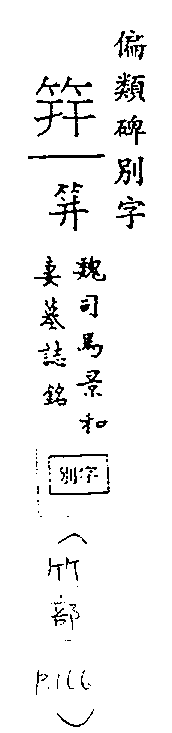 偏類碑別字
筓
笄
魏司馬景和
妻墓誌銘
別字
(竹部 P.166)